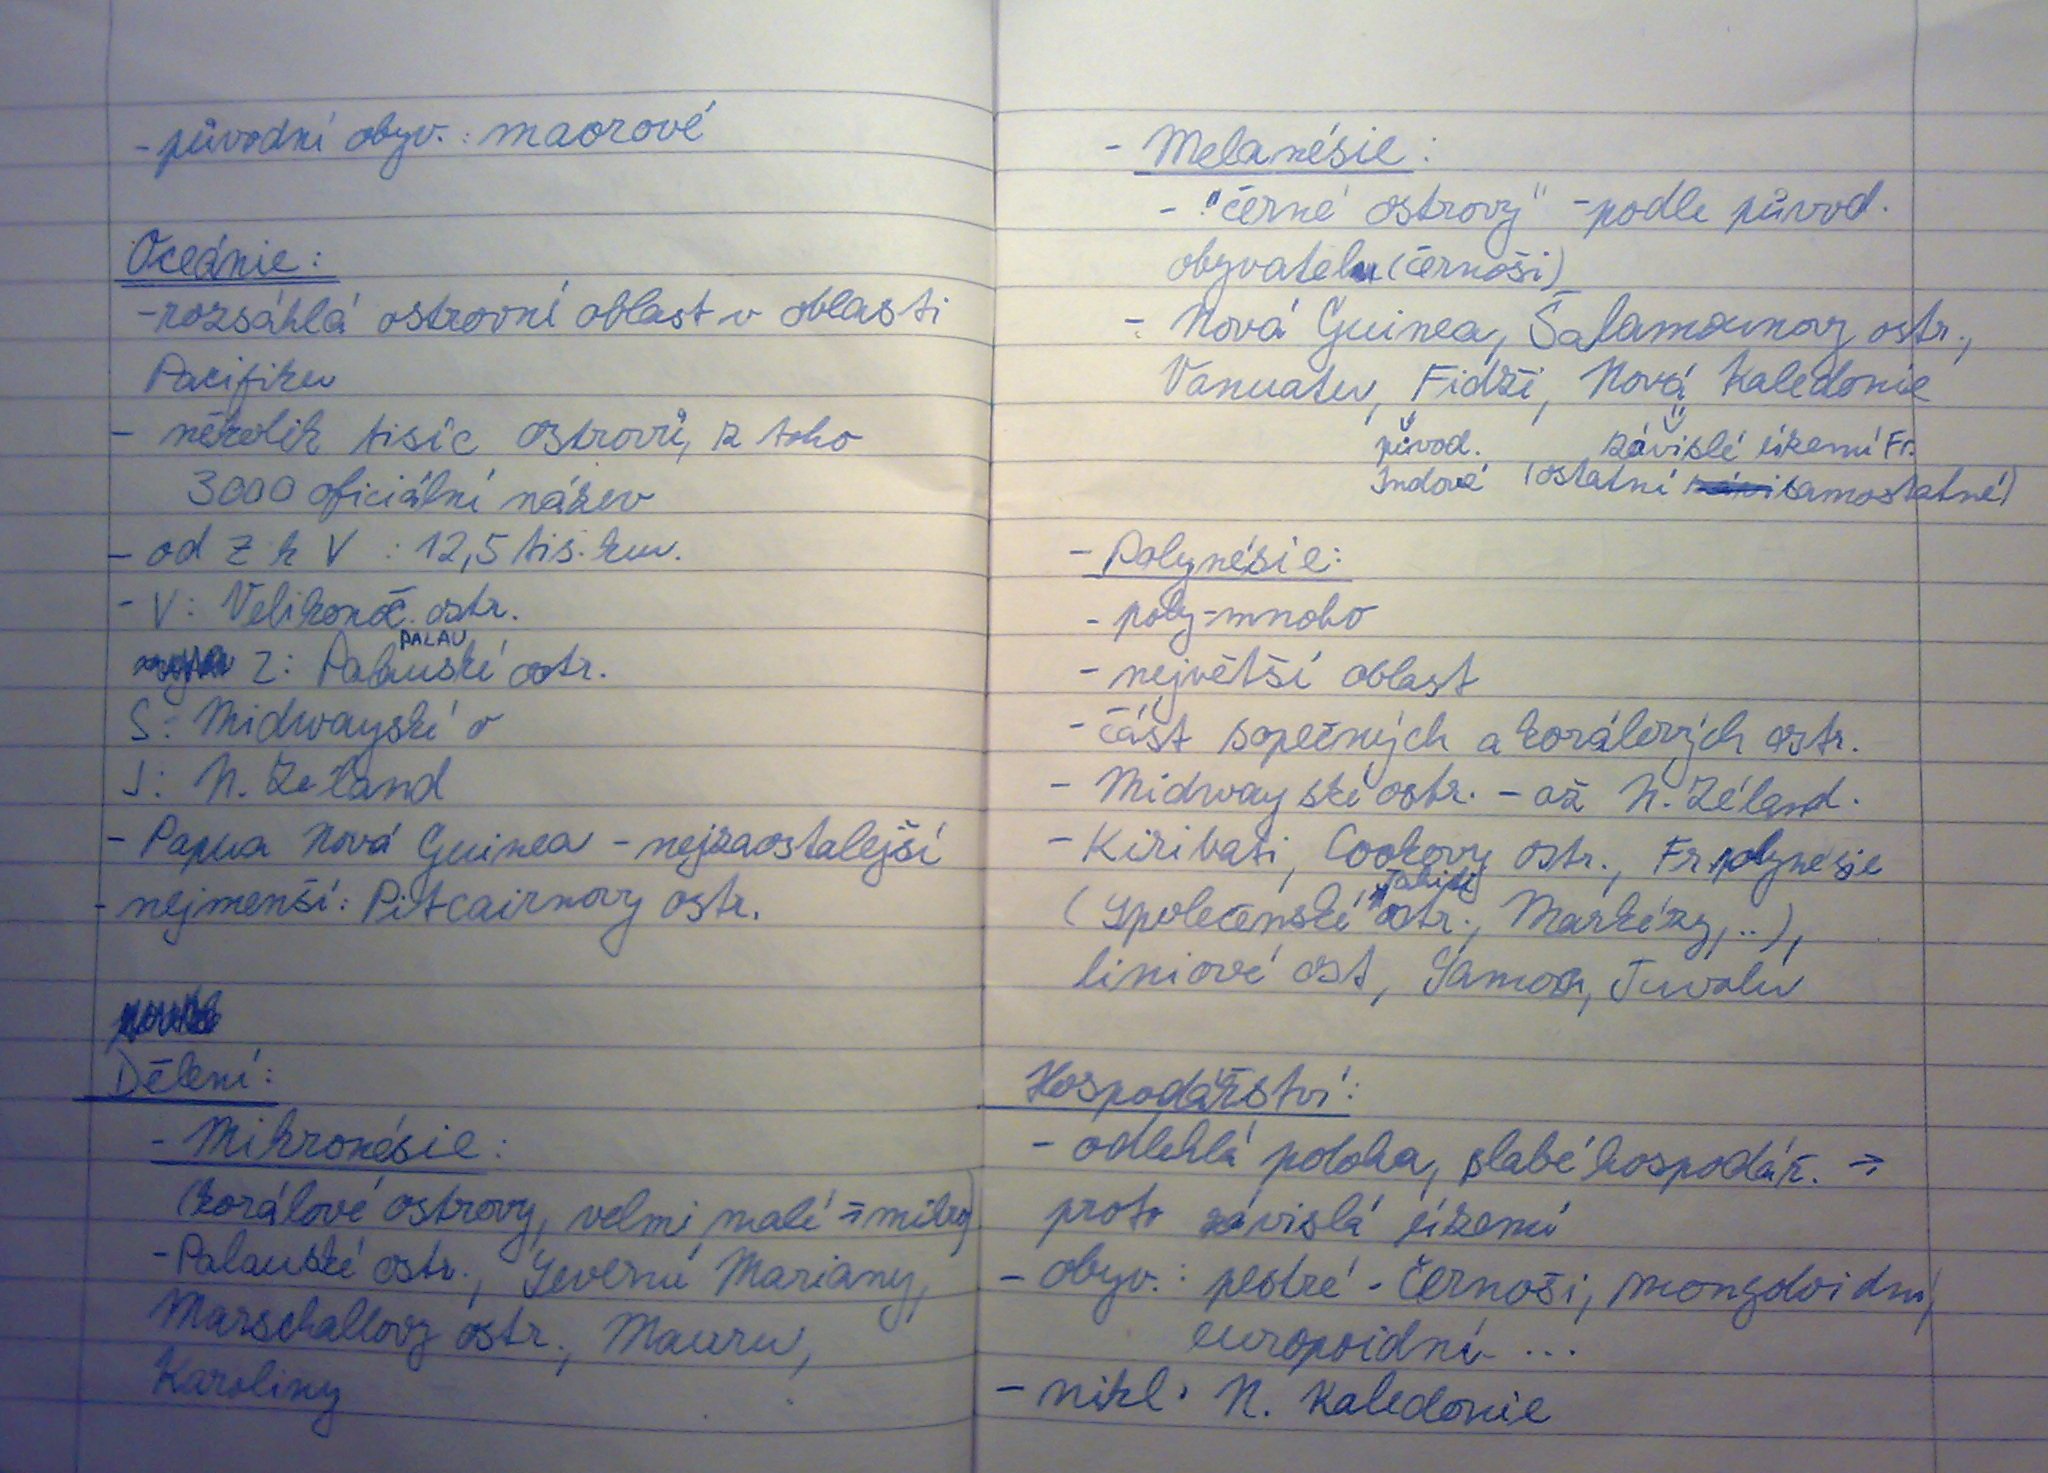 - původní obyv. : maorové
Oceánie :
- rozsáhlá ostrovní oblast v oblasti
Pacifiku
- několik tisíc ostrovů, z toho
3000 oficiální název
- od Z k V : 12,5 tis. km.
- V: Velikonoč. ostr.
PALAU
Z: Palauské ostr.
S: Midwayské o
J: N. Zeland
- Papua Nová Guinea - nejzaostalejší
- nejmenší: Pitcairnovy ostr.
Dělení :
- Mikronésie :
(korálové ostrovy, velmi malé => mikro)
- Palauské ostr., Severní Mariany,
Marschallovy ostr., Nauru,
Karoliny
- Melanésie :
- "černé ostrovy" - podle původ.
obyvatel (černoši)
- Nová Guinea, Šalamounovy ostr.,
Vanuatu, Fidži, Nová Kaledonie
původ. závislé území Fr.
Indové (ostatní samostatné)
- Polynésie :
- poly = mnoho
- největší oblast
- část sopečných a korálových ostr.
- Midwayské ostr. - až N. Zéland.
- Kiribati, Cookovy ostr., Fr. polynésie
Tahiti
(Společenské ostr., Markézy, ..),
liniové ost, Samoa, Tuvalu
Hospodářství :
- odlehlá poloha, slabé hospodář. =>
proto závislá území
- obyv. : pestré - černoši, mongoloidní,
europoidní ...
- nikl : N. Kaledonie